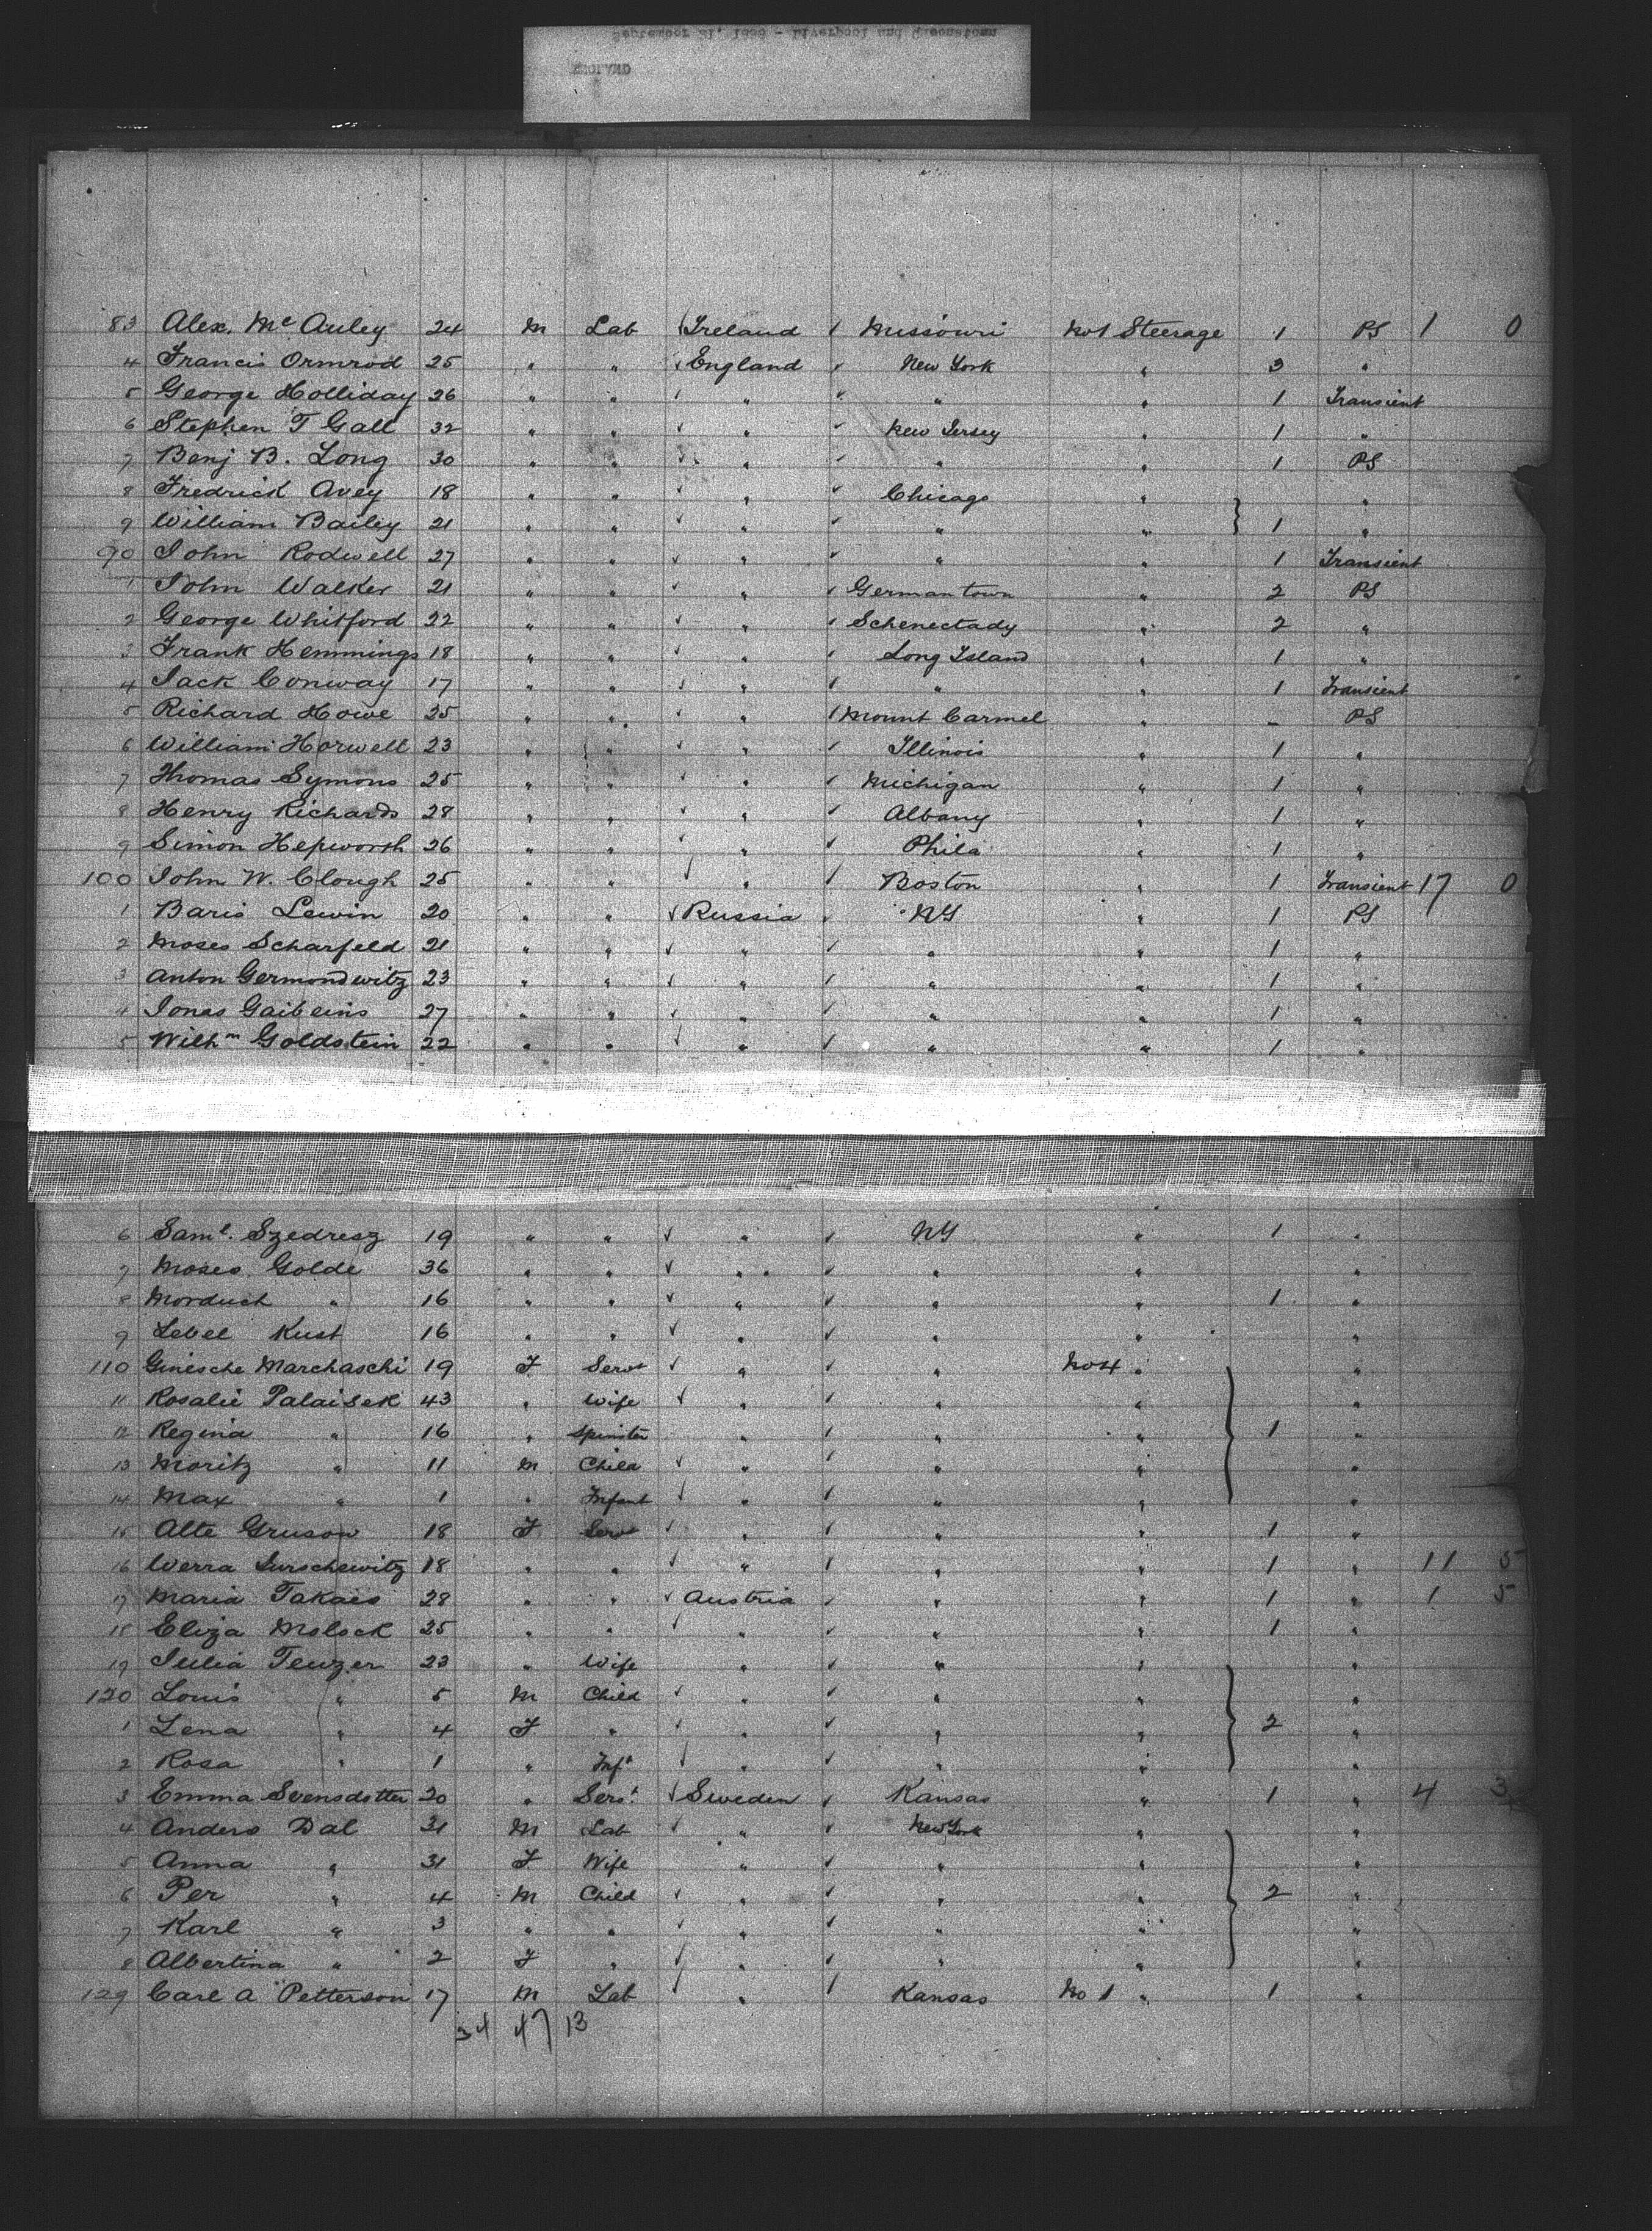 September 21, - Liverpool and Queenstown
ENGLAND
83 Alex. Mc Auley 24 M Lab Ireland Missouri No 1 Steerage 1 PS 1 0
4 Francis Ormrod 25 " " England New York " 3 "
5 George Holliday 26 " " " " " 1 Transient
6 Stephen T Gall 32 " " " New Jersey " 1 "
7 Benj B. Long 30 " " " " " 1 PS
8 Fredrick Avey 18 " " " Chicago " "
9 William Bailey 21 " " " " " 1 "
90 John Rodwell 27 " " " " " 1 Transient
1 John Walker 21 " " " Germantown " 2 PS
2 George Whitford 22 " " " Schenectady " 2 "
3 Frank Hemmings 18 " " " Long Island " 1 "
4 Jack Conway 17 " " " " " 1 Transient
5 Richard Howe 25 " " " Mount Carmel " - PS
6 William Horwell 23 " " " Illinois " 1 "
7 Thomas Symons 25 " " " Michigan " 1 "
8 Henry Richards 28 " " " Albany " 1 "
9 Simon Hepworth 26 " " " Phila " 1 "
100 John W. Clough 25 " " " Boston " 1 Transient 17 0
1 Baris Lewin 20 " " Russia NY " 1 PS
2 Moses Scharfeld 21 " " " " " 1 "
3 Anton Germondwitz 23 " " " " " 1 "
4 Jonas Gaibeins 27 " " " " " 1 "
5 Wilhm Goldstein 22 " " " " " 1 "
6 Saml. Szedresz 19 " " " NY " 1 "
7 Moses Golde 36 " " " " " "
8 Morduch " 16 " " " " " 1 "
9 Lebel Kust 16 " " " " " "
110 Ginesche Marchaschi 19 F Servt " " No 4 " "
11 Rosalie Palaisek 43 " Wife " " " "
12 Regina " 16 " Spinster " " " 1 "
13 Moritz " 11 M Child " " " "
14 Max " 1 " Infant " " " "
15 Alte Gruson 18 F Servt " " " 1 "
16 Werra Lurschewitz 18 " " " " " 1 " 11 5
17 Maria Takacs 28 " " Austria " " 1 " 1 5
18 Eliza Molock 25 " " " " " 1 "
19 Julia Teuzer 23 " Wife " " " "
120 Louis " 5 M Child " " " "
1 Lena " 4 F " " " " 2 "
2 Rosa " 1 " Inft " " " "
3 Emma Svensdotter 20 " Servt. Sweden Kansas " 1 " 4 3
4 Anders Dal 31 M Lab " New York " "
5 Anna " 31 F Wife " " " "
6 Per " 4 M Child " " " 2 "
7 Karl " 3 " " " " " "
8 Albertina " 2 F " " " " "
129 Carl A Petterson 17 M Lab " Kansas No 1 " 1 "
34 47 13